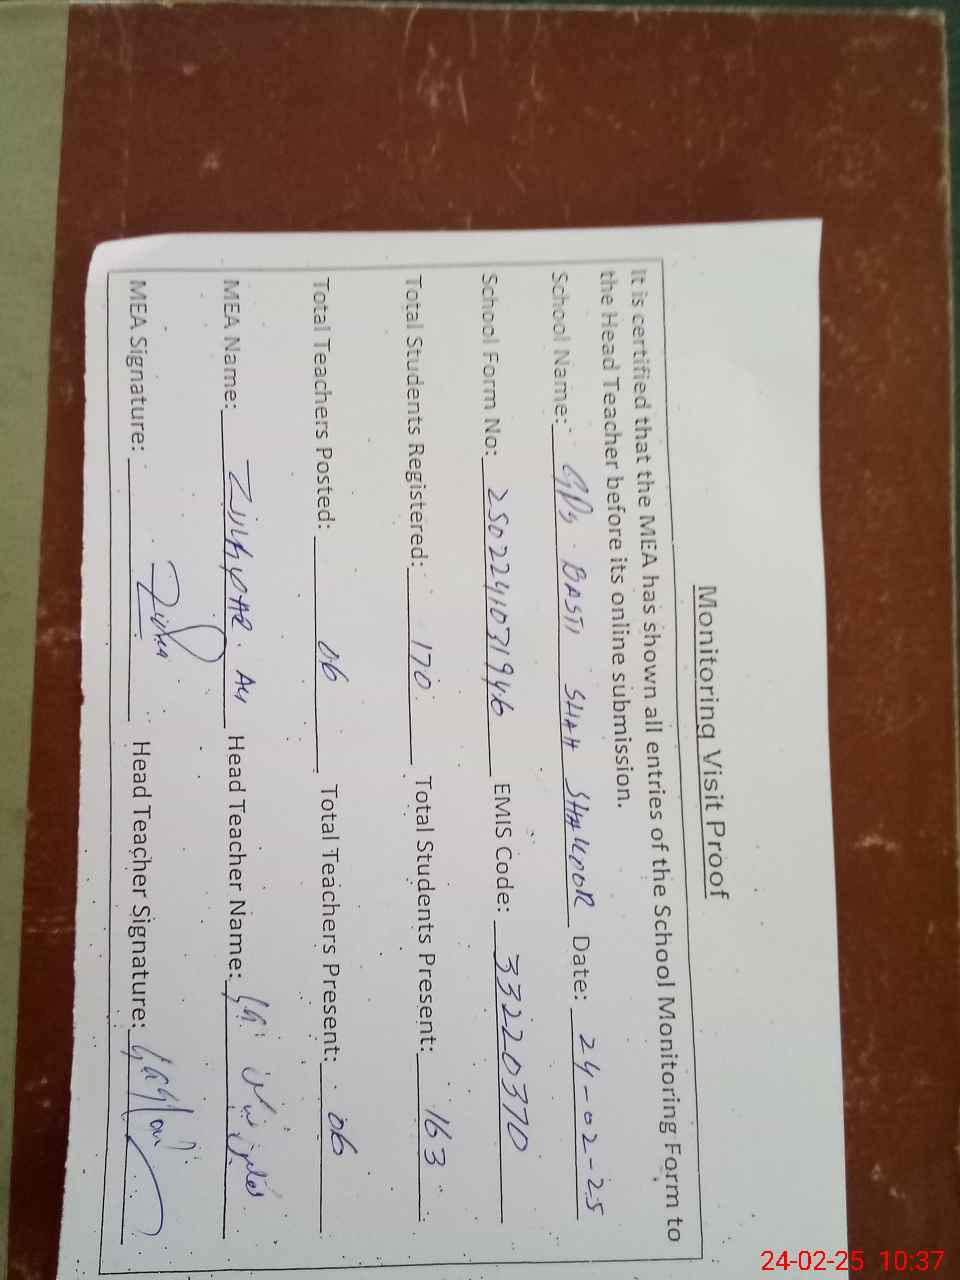 Monitoring Visit Proof
It is certified that the MEA has shown all entries of the School Monitoring Form to
the Head Teacher before its online submission.
School Name: GPS BASTI SHAH SHAKOOR Date: 24-02-25
School Form No: 25022410319446 EMIS Code: 33220370
Total Students Registered: 170 Total Students Present: 163
Total Teachers Posted: 06 Total Teachers Present: 06
MEA Name: Zulfiqar Ali Head Teacher Name:
MEA Signature: Head Teacher Signature:
24-02-25 10:37